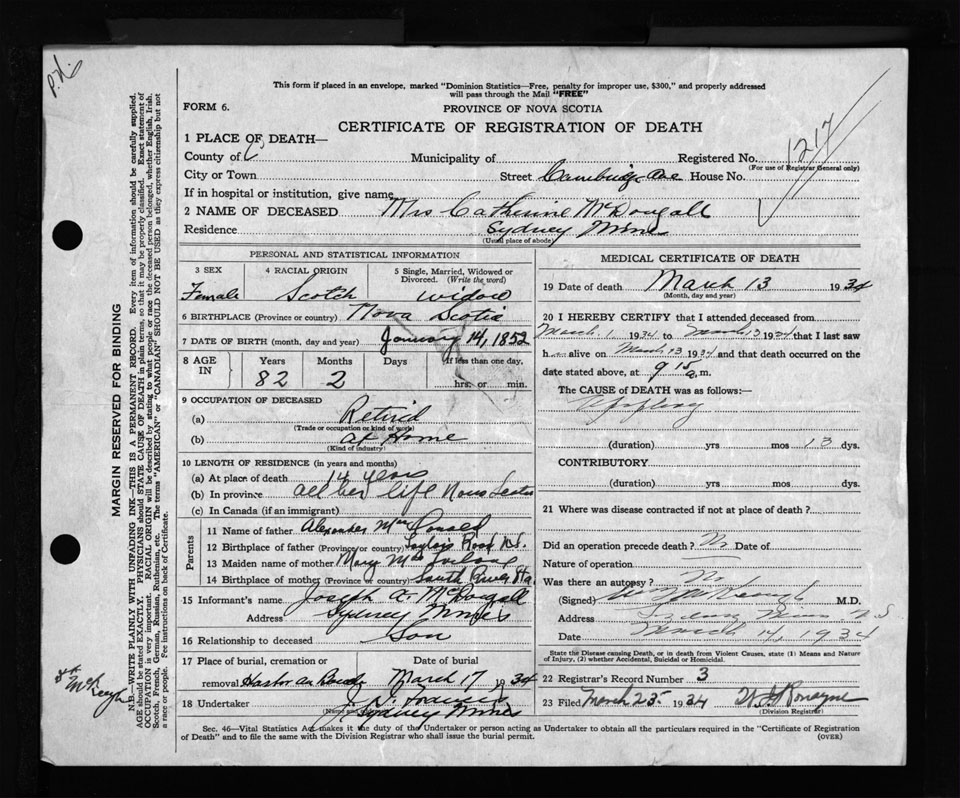 P.N.
This form if placed in an envelope, marked "Dominion Statistics—Free, penalty for improper use, $300," and properly addressed
will pass through the Mail "FREE"
FORM 6.
PROVINCE OF NOVA SCOTIA
CERTIFICATE OF REGISTRATION OF DEATH
1217
1 PLACE OF DEATH—
County of Municipality of Registered No.
(For use of Registrar General only)
City or Town Street Cambridge Ave House No.
If in hospital or institution, give name
2 NAME OF DECEASED Mrs Catherine McDougall
Residence Sydney Mines
(Usual place of abode)
PERSONAL AND STATISTICAL INFORMATION
3 SEX 4 RACIAL ORIGIN 5 Single, Married, Widowed or
Divorced. (Write the word)
Female Scotch widow
6 BIRTHPLACE (Province or country) Nova Scotia
7 DATE OF BIRTH (month, day and year) January 14, 1852
8 AGE IN Years Months Days If less than one day,
82 2 hrs. or min.
9 OCCUPATION OF DECEASED
(a) Retired
(Trade or occupation or kind of work)
(b) At Home
(Kind of industry)
10 LENGTH OF RESIDENCE (in years and months)
(a) At place of death 14 years
(b) In province all her life Nova Scotia
(c) In Canada (if an immigrant)
Parents
11 Name of father Alexander MacDonald
12 Birthplace of father (Province or country) Road N.S.
13 Maiden name of mother Mary
14 Birthplace of mother (Province or country) South River
15 Informant's name Joseph A. McDougall
Address Sydney Mines
16 Relationship to deceased Son
17 Place of burial, cremation or Date of burial
removal March 17 1934
18 Undertaker
(Name and Address)
Sydney Mines
MEDICAL CERTIFICATE OF DEATH
19 Date of death March 13 1934
(Month, day and year)
20 I HEREBY CERTIFY that I attended deceased from
March 1 1934 to March 13 1934 that I last saw
h alive on March 13 1934 and that death occurred on the
date stated above, at 9 15 a.m.
The CAUSE OF DEATH was as follows:—
(duration) yrs mos 13 dys.
CONTRIBUTORY
(duration) yrs mos dys.
21 Where was disease contracted if not at place of death?
Did an operation precede death? No Date of
Nature of operation
Was there an autopsy? No
(Signed) M.D.
Address Sydney Mines N.S
Date March 14, 1934
State the Disease causing Death, or in death from Violent Causes, state (1) Means and
Nature of Injury, (2) whether Accidental, Suicidal or Homicidal.
22 Registrar's Record Number 3
23 Filed March 25 1934
(Division Registrar)
Sec. 46—Vital Statistics Act makes it the duty of the Undertaker or person acting as Undertaker to obtain all the particulars required in the "Certificate of Registration
of Death" and to file the same with the Division Registrar who shall issue the burial permit. (OVER)
MARGIN RESERVED FOR BINDING
N.B.—WRITE PLAINLY WITH UNFADING INK—THIS IS A PERMANENT RECORD. Every item of information should be carefully supplied.
AGE should be stated EXACTLY. PHYSICIANS should STATE CAUSE OF DEATH in plain terms, so that it may be properly classified. Exact statement of
OCCUPATION is very important. RACIAL ORIGIN will be described by stating to what people or race the deceased person belonged, whether English, Irish,
Scotch, French, German, Russian, Ruthenian, etc. The terms "AMERICAN" or "CANADIAN" SHOULD NOT BE USED as they express citizenship but not
a race or people. Fee instructions on back of Certificate.